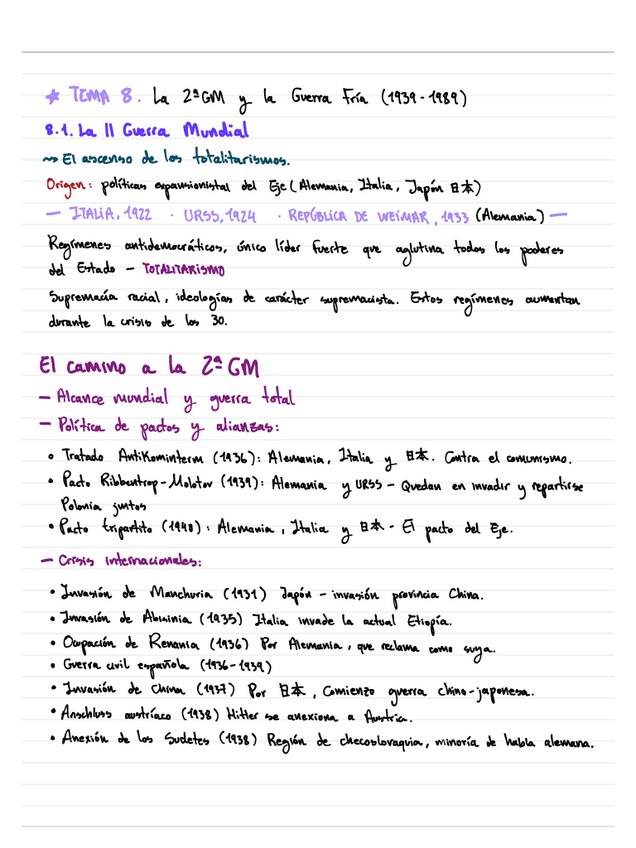 ★ TEMA 8. La 2ªGM y la Guerra Fría (1939-1989)
8.1. La II Guerra Mundial
~> El ascenso de los totalitarismos.
Origen: políticas expansionistas del Eje (Alemania, Italia, Japón 日本)
— ITALIA, 1922 · URSS, 1924 · REPÚBLICA DE WEIMAR, 1933 (Alemania) —
Regímenes antidemocráticos, único líder fuerte que aglutina todos los poderes
del Estado – TOTALITARISMO
Supremacía racial, ideologías de carácter supremacista. Estos regímenes aumentan
durante la crisis de los 30.
El camino a la 2ªGM
– Alcance mundial y guerra total
– Política de pactos y alianzas:
• Tratado AntiKominterm (1936): Alemania, Italia y 日本. Contra el comunismo.
• Pacto Ribbentrop-Molotov (1939): Alemania y URSS – Quedan en invadir y repartirse
Polonia juntos
• Pacto tripartito (1940): Alemania, Italia y 日本 - El pacto del Eje.
– Crisis internacionales:
• Invasión de Manchuria (1931) Japón – invasión provincia China.
• Invasión de Abisinia (1935) Italia invade la actual Etiopía.
• Ocupación de Renania (1936) Por Alemania, que reclama como suya.
• Guerra civil española (1936-1939)
• Invasión de China (1937) Por 日本, Comienzo guerra chino-japonesa.
• Anschluss austríaco (1938) Hitler se anexiona a Austria.
• Anexión de los Sudetes (1938) Región de checoslovaquia, minoría de habla alemana.